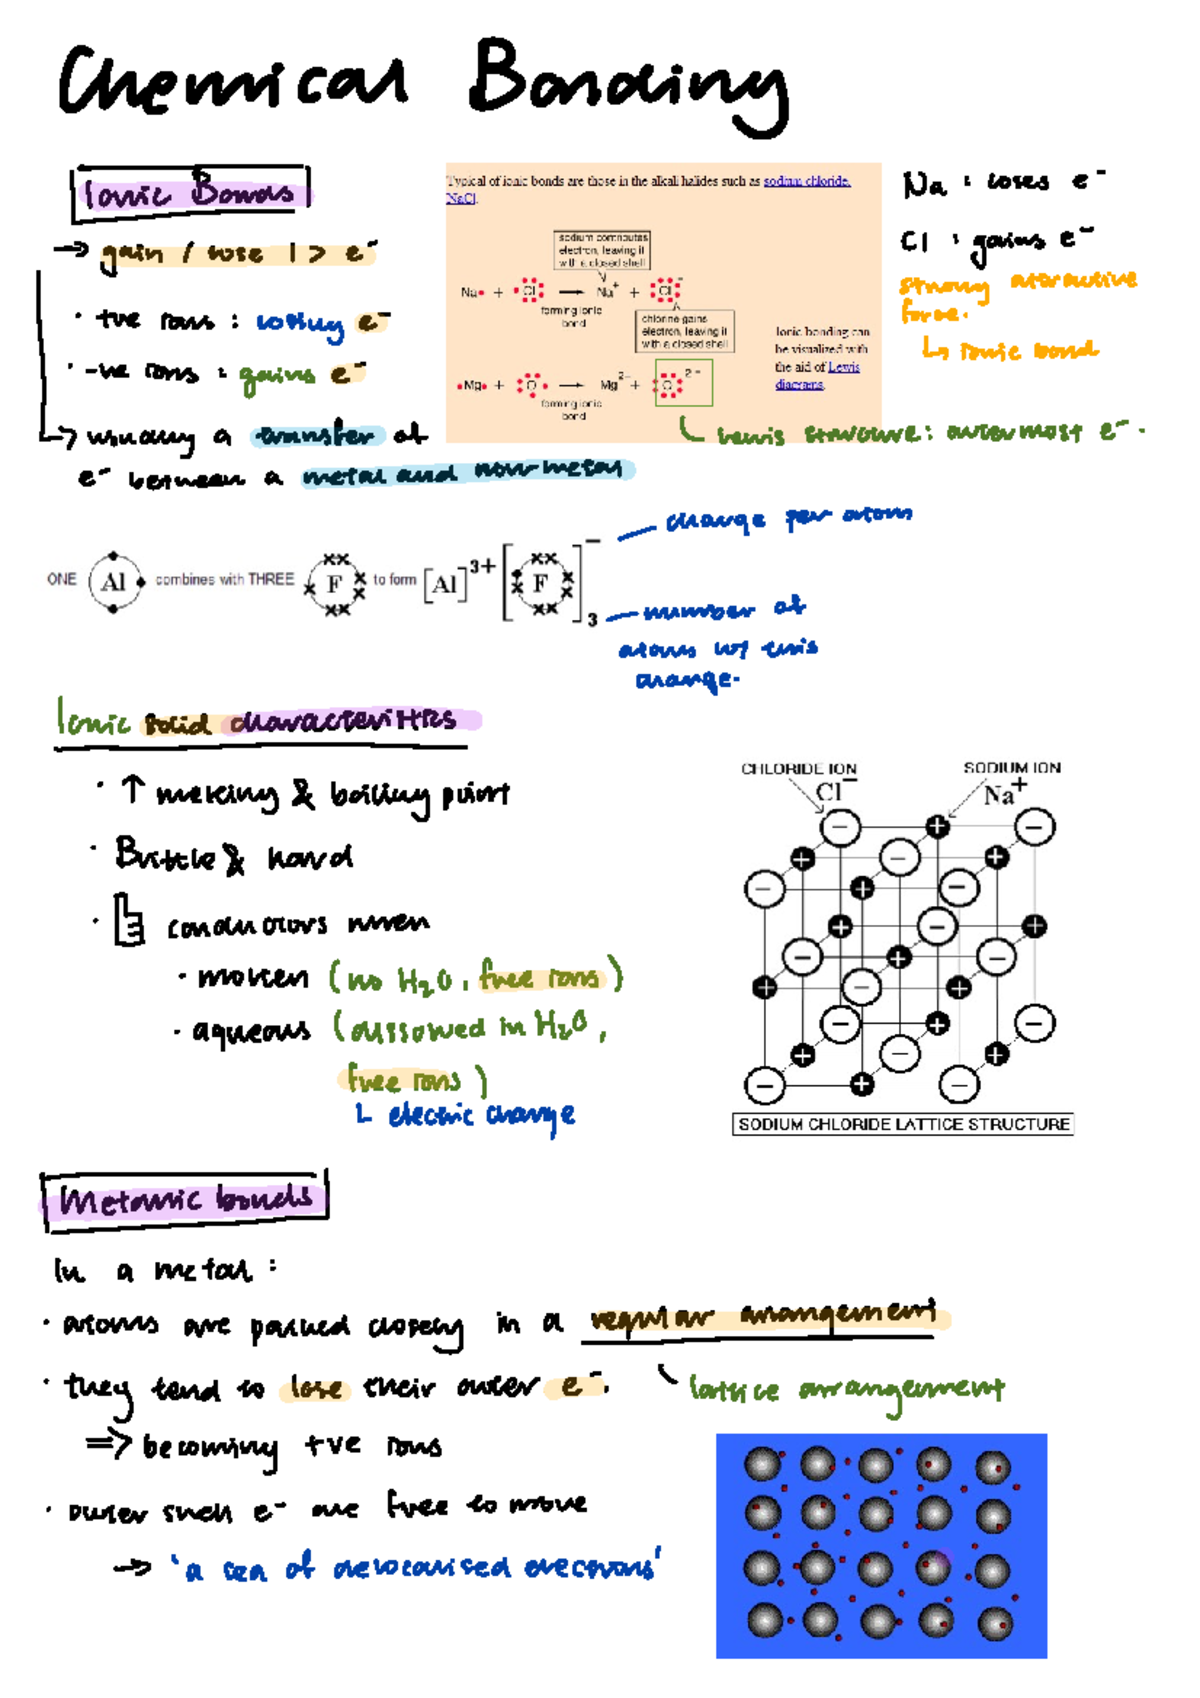 Chemical Bonding
Ionic Bonds
→ gain / lose 1 > e⁻
· +ve ions : losing e⁻
· -ve ions : gains e⁻
↳ usually a transfer of
e⁻ between a metal and non-metal
Typical of ionic bonds are those in the alkali halides such as sodium chloride,
NaCl.
sodium contributes
electron, leaving it
with a closed shell
Na• + Cl → Na⁺ + Cl⁻
forming ionic
bond
chlorine gains
electron, leaving it
with a closed shell
Ionic bonding can
be visualized with
the aid of Lewis
diagrams.
•Mg• + O → Mg²⁻ + O²⁻
forming ionic
bond
Na : loses e⁻
Cl : gains e⁻
strong attractive
force.
↳ ionic bond
Lewis structure: outermost e⁻.
ONE Al combines with THREE F to form [Al]³⁺ [F]⁻₃
charge per atom
number of
atoms w/ this
charge.
Ionic solid characteristics
· ↑ melting & boiling point
· Brittle & hard
· conductors when
· molten (no H₂O, free ions)
· aqueous (dissolved in H₂O,
free ions)
↳ electric charge
CHLORIDE ION
Cl⁻
SODIUM ION
Na⁺
SODIUM CHLORIDE LATTICE STRUCTURE
Metallic bonds
In a metal :
· atoms are packed closely in a regular arrangement
lattice arrangement
· they tend to lose their outer e⁻.
=> becoming +ve ions
· outer shell e⁻ are free to move
→ 'a sea of delocalised electrons'